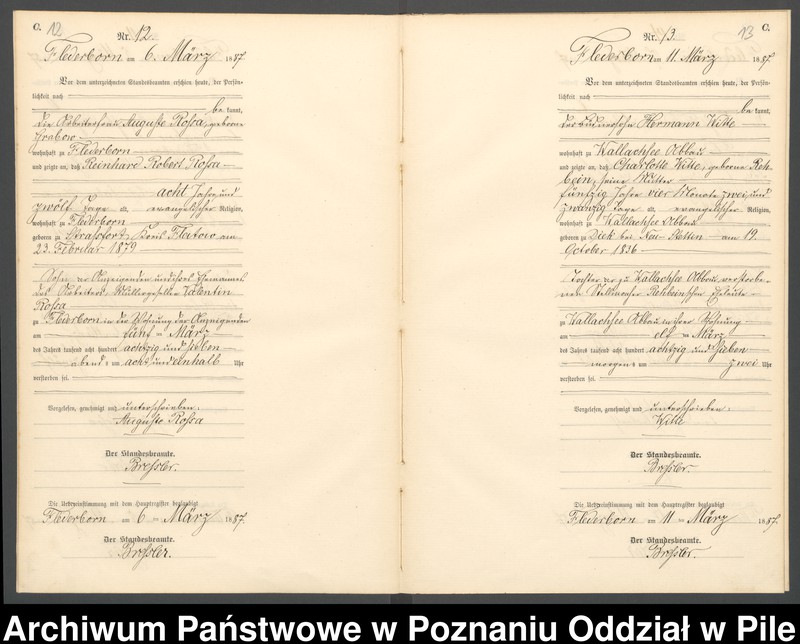 C. 12
Nr. 12.
Flederborn am 6. März 1887.
Vor dem unterzeichneten Standesbeamten erschien heute, der Persön-
lichkeit nach
be kannt,
die Arbeiterfrau Auguste Rossa, geborene
Grabow
wohnhaft zu Flederborn
und zeigte an, daß Reinhard Robert Rossa
acht Jahre und
zwölf Tage alt, evangelischer Religion,
wohnhaft zu Flederborn
geboren zu Strassfort, Kreis Flatow am
23. Februar 1879
Sohn der Anzeigenden und ihres Ehemannes
des Arbeiters, Müllergesellen Valentin
Rossa
zu Flederborn in der Wohnung der Anzeigenden
am fünf ten März
des Jahres tausend acht hundert achtzig und sieben
abends um acht und einhalb Uhr
verstorben sei.
Vorgelesen, genehmigt und unterschrieben:
Auguste Rossa
Der Standesbeamte.
Bressler.
Die Uebereinstimmung mit dem Hauptregister beglaubigt
Flederborn am 6 ten März 1887.
Der Standesbeamte.
Bressler.
13 C.
Nr. 13.
Flederborn am 11. März 1887.
Vor dem unterzeichneten Standesbeamten erschien heute, der Persön-
lichkeit nach
be kannt,
der Büdnersohn Hermann Witte
wohnhaft zu Wallachsee Abbau
und zeigte an, daß Charlotte Witte, geborene Reh-
bein, seine Mutter
fünfzig Jahre vier Monate zwei und
zwanzig Tage alt, evangelischer Religion,
wohnhaft zu Wallachsee Abbau
geboren zu Dieck bei Neu-Stettin am 19.
October 1836
Tochter der zu Wallachsee Abbau verstorbe-
nen Rehbeinschen Eheleute
zu Wallachsee Abbau in ihrer Wohnung
am elf ten März
des Jahres tausend acht hundert achtzig und sieben
morgens um zwei Uhr
verstorben sei.
Vorgelesen, genehmigt und unterschrieben:
Witte
Der Standesbeamte.
Bressler.
Die Uebereinstimmung mit dem Hauptregister beglaubigt
Flederborn am 11 ten März 1887.
Der Standesbeamte.
Bressler.
Archiwum Państwowe w Poznaniu Oddział w Pile